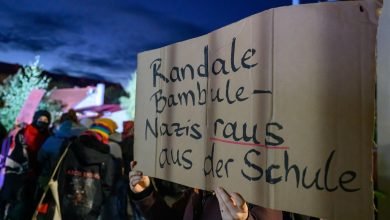 Randale
Bambule-
Nazis raus
aus der Schule